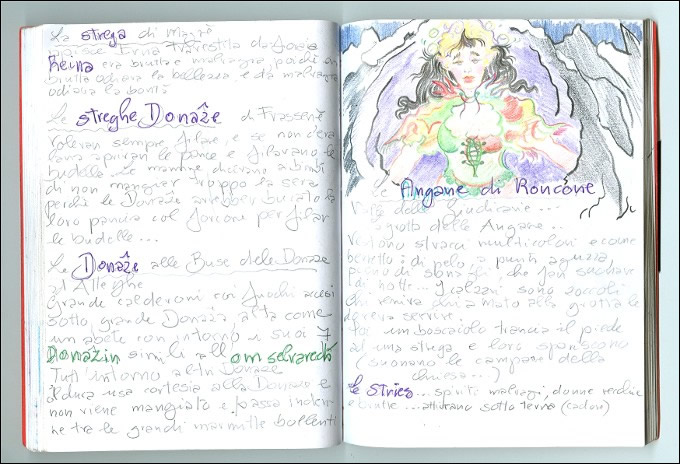 La strega di
Erina travestita da
Reina era brutta e malvagia, poichè
brutta odiava la bellezza e da malvagia
odiava la bontà
Le streghe Donaẑe di Frassenè
volevan sempre filare, e se non c'era
lana aprivan le pance e filavano le
budella. Le mamme dicevano ai bimbi
di non mangiar troppo la sera
perchè le Donaze avrebber bucato la
loro pancia col forcone per filar
le budelle...
Le Donaẑe alle Buse dele Donaze
ad Alleghe
Grandi calderoni coi fuochi accesi
sotto grande Donaza alta come
un abete con intorno i suoi 7
Donazin simili all om selvarech
Tutt'intorno altre Donaze
usa cortesia alla Donaza e
non viene mangiato e passa indem
ne tra le grandi marmitte bollenti
Le Angane di Roncone
Valle delle Giudicarie...
grotta delle Angane..
Vestono stracci multicolori e come
berretto di pelo a punta aguzza
pieno di sonagli che fan suonare
di notte... I calzari sono zoccoli
Chi veniva
doveva servire.
Poi un boscaiolo trancia il piede
ad una strega e loro spariscono
(suonano le campane della
chiesa...)
le Stries... spiriti malvagi, donne vecchie
e brutte... abitavano sotto terra (Cadore)